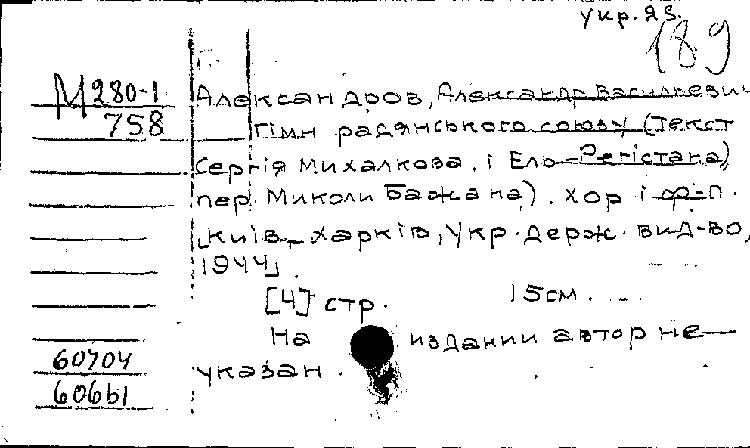 укр. яз.
189
М 280-1
758
Александров, Александр Васильевич
Гімн радянського союзу (Текст
Сергія Михалкова і Ель-Регістана,
пер. Миколи Бажана). Хор і ф-п.
[Київ-Харків, Укр. держ. вид-во,
1944].
[4] стр. 15 см.
На издании автор не
указан.
60704
60661